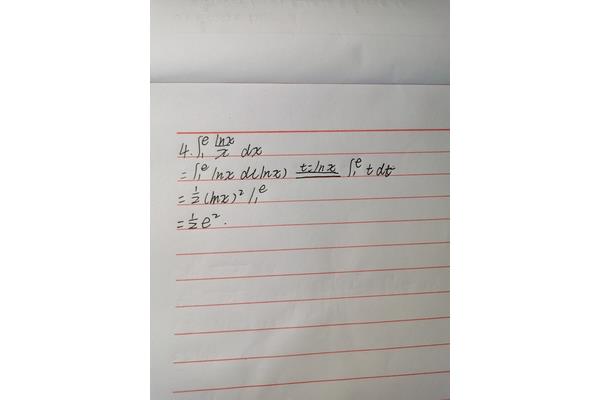 4. ∫₁ᵉ lnx/x dx
= ∫₁ᵉ lnx d(lnx) t=lnx ∫₁ᵉ t dt
= 1/2 (lnx)² |₁ᵉ
= 1/2 e².